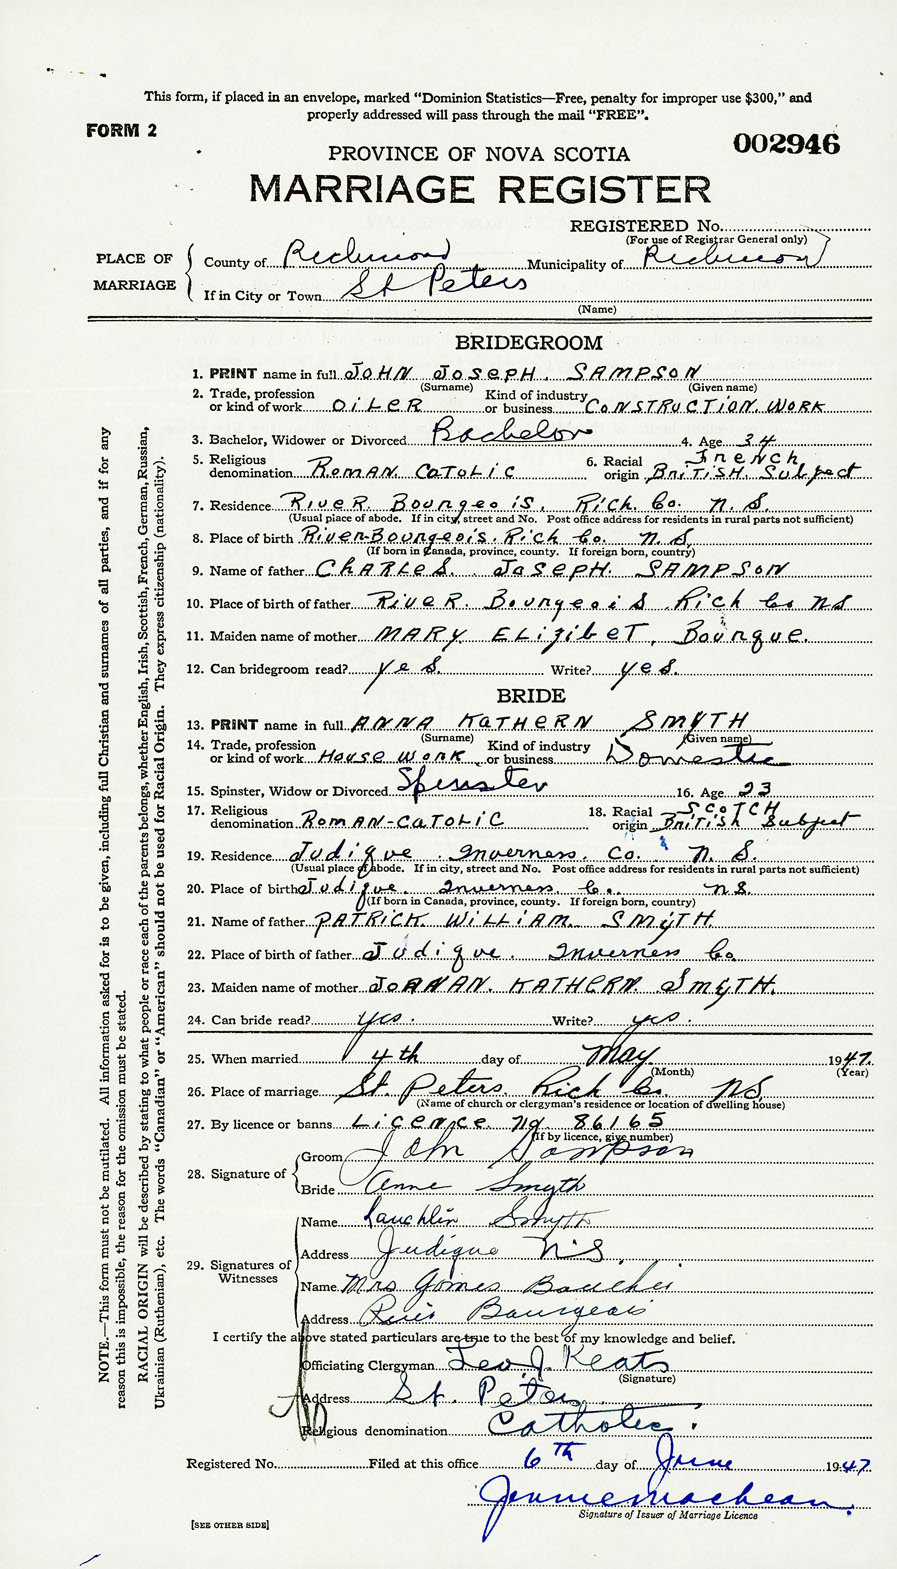 This form, if placed in an envelope, marked "Dominion Statistics—Free, penalty for improper use $300," and
properly addressed will pass through the mail "FREE".
FORM 2
002946
PROVINCE OF NOVA SCOTIA
MARRIAGE REGISTER
REGISTERED No.
(For use of Registrar General only)
PLACE OF MARRIAGE
County of Richmond Municipality of Richmond
If in City or Town St Peters
(Name)
BRIDEGROOM
1. PRINT name in full JOHN JOSEPH. SAMPSON
(Surname) (Given name)
2. Trade, profession or kind of work OILER Kind of industry or business CONSTRUCTION WORK
3. Bachelor, Widower or Divorced Bachelor 4. Age 34
5. Religious denomination ROMAN CATOLIC 6. Racial origin FRENCH BRITISH. Subject
7. Residence RIVER BOURGEOIS, RICH. Co. N. S.
(Usual place of abode. If in city, street and No. Post office address for residents in rural parts not sufficient)
8. Place of birth RIVER-BOURGEOIS. RICH Co. N. S.
(If born in Canada, province, county. If foreign born, country)
9. Name of father CHARLES. JOSEPH. SAMPSON
10. Place of birth of father RIVER. BOURGEOIS RICH Co NS
11. Maiden name of mother MARY ELIZIBET, Bourque.
12. Can bridegroom read? yes. Write? yes.
BRIDE
13. PRINT name in full ANNA KATHERN SMYTH
(Surname) (Given name)
14. Trade, profession or kind of work House work Kind of industry or business Domestic
15. Spinster, Widow or Divorced Spinster 16. Age 23
17. Religious denomination ROMAN-CATOLIC 18. Racial origin SCOTCH BRITISH Subject
19. Residence Judique Inverness. Co. N. S.
(Usual place of abode. If in city, street and No. Post office address for residents in rural parts not sufficient)
20. Place of birth Judique. Inverness Co. N.S.
(If born in Canada, province, county. If foreign born, country)
21. Name of father PATRICK WILLIAM. SMYTH
22. Place of birth of father Judique. Inverness Co.
23. Maiden name of mother JOANAN. KATHERN. SMYTH.
24. Can bride read? yes. Write? yes.
25. When married 4th day of May 1947.
(Month) (Year)
26. Place of marriage St. Peters, Rich Co. NS.
(Name of church or clergyman's residence or location of dwelling house)
27. By licence or banns Licence No 86165
(If by licence, give number)
28. Signature of
Groom John Sampson
Bride Anne Smyth
29. Signatures of Witnesses
Name Lauchlin Smyth
Address Judique N.S.
Name Mrs Bouchei
Address Bourgeois
I certify the above stated particulars are true to the best of my knowledge and belief.
Officiating Clergyman Leo J. Keats
(Signature)
Address St. Peters
Religious denomination Catholic.
Registered No. Filed at this office 6TH day of June 1947.
Jennie MacLean.
Signature of Issuer of Marriage Licence
[SEE OTHER SIDE]
NOTE.—This form must not be mutilated. All information asked for is to be given, including full Christian and surnames of all parties, and if for any
reason this is impossible, the reason for the omission must be stated.
RACIAL ORIGIN will be described by stating to what people or race each of the parents belongs, whether English, Irish, Scottish, French, German, Russian,
Ukrainian (Ruthenian), etc. The words "Canadian" or "American" should not be used for Racial Origin. They express citizenship (nationality).